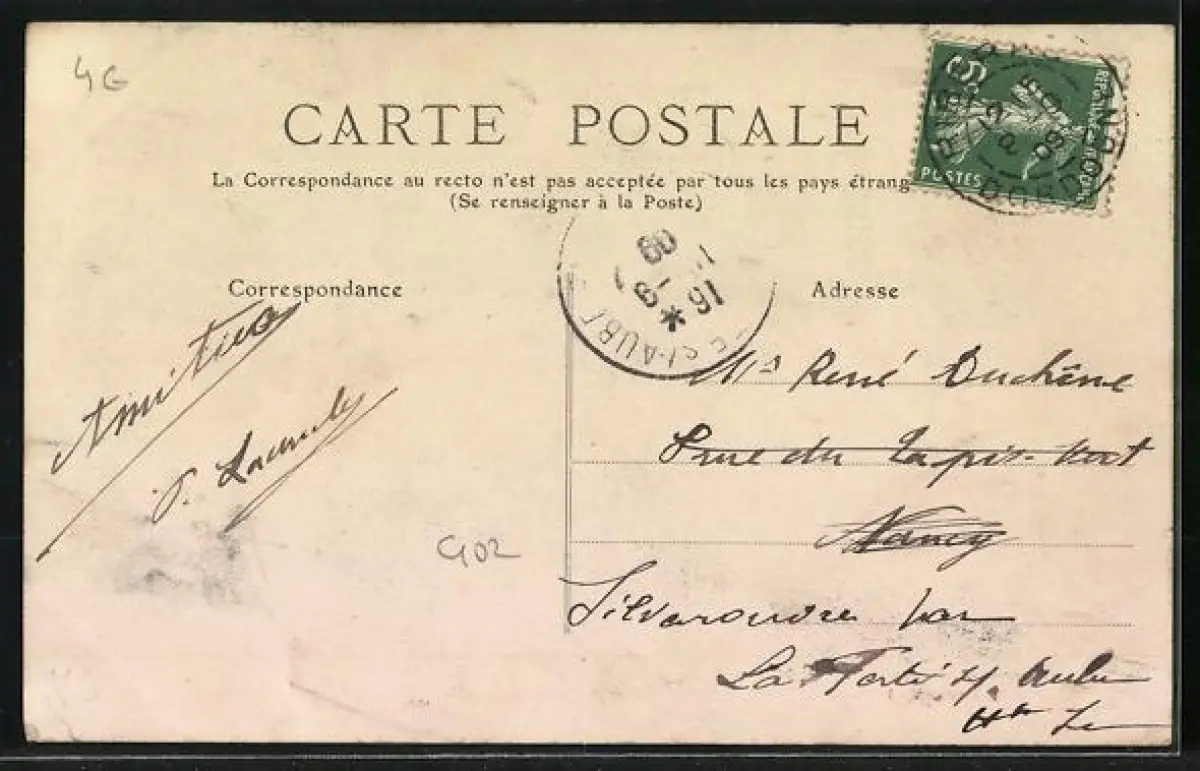 4G
CARTE POSTALE
La Correspondance au recto n'est pas acceptée par tous les pays étrang
(Se renseigner à la Poste)
5
POSTES
DORDOGNE
09
16
AUBE
Correspondance
Adresse
Amitiés
René Duchêne
rue du Tapis-Vert
Nancy
C402
Silvarouvre par
La Ferté s/ Aube
Hte